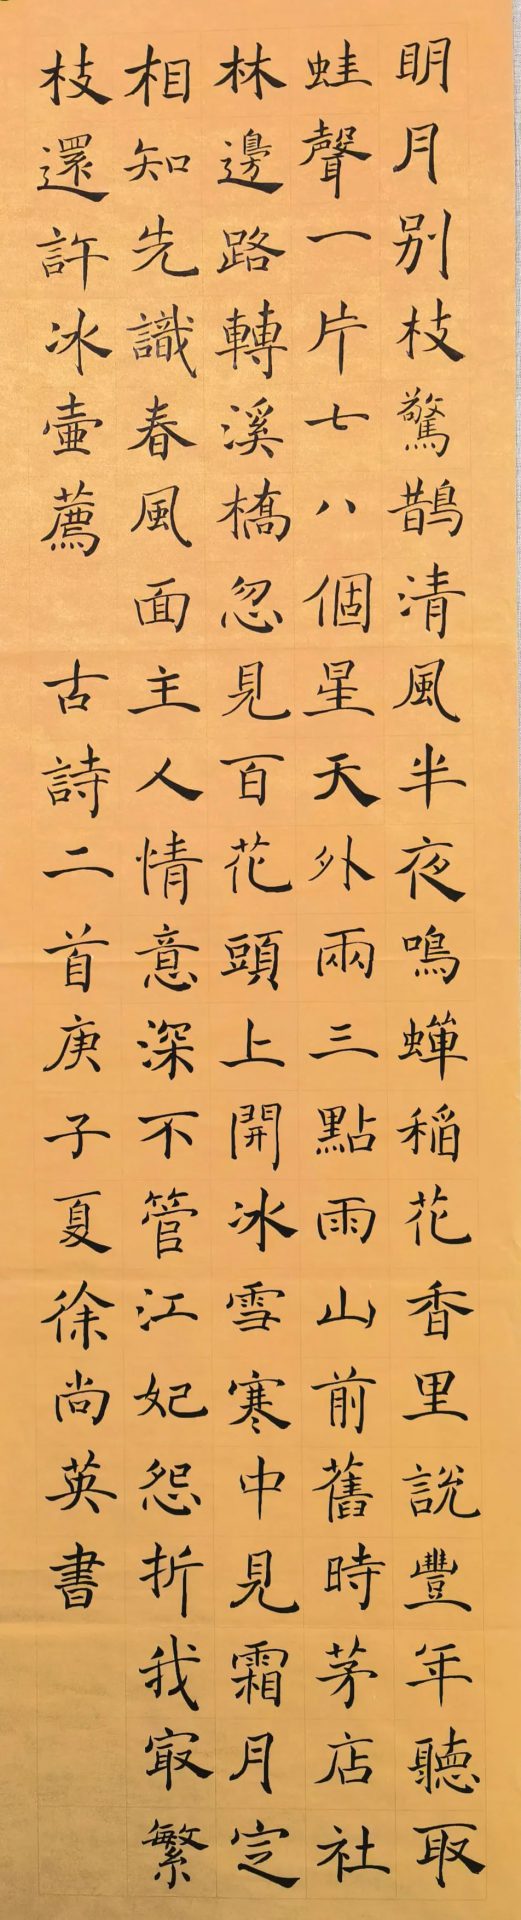 明月别枝驚鵲清風半夜鳴蟬稻花香里說豐年聽取
蛙聲一片七八個星天外兩三點雨山前舊時茅店社
林邊路轉溪橋忽見百花頭上開冰雪寒中見霜月定
相知先識春風面主人情意深不管江妃怨折我㝡繁
枝還許冰壺薦 古詩二首庚子夏徐尚英書